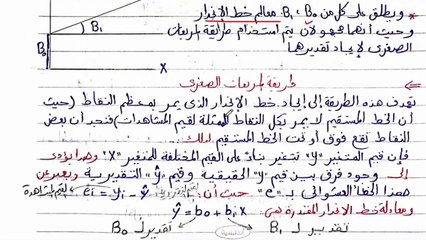 * ويطلق على كل من B₀ ، B₁: معالم خط الانحدار
وحيث أنهما مجهولان يتم استخدام طريقة المربعات
الصغرى لايجاد تقديرها
B₁
B₀
X
طريقة المربعات الصغرى
تهدف هذه الطريقة إلى إيجاد خط الانحدار الذى يمر بمعظم النقاط (حيث
أن الخط المستقيم لا يمر بكل النقاط الممثلة لقيم المشاهدات) فنجد أن بعض
النقاط تقع فوق أو تحت الخط المستقيم لذلك:-
فإن قيم المتغير "y" تتغير بناء على القيم المختلفة للمتغير "X" وهذا يؤدى
إلى وجود فرق بين قيم "y" الحقيقية وقيم ŷ التقديرية ويعبر عن
هذا الخطأ العشوائى بـ "e" حيث أن: ei = yi - ŷ
ومعادلة خط الانحدار المقدرة هى: ŷ = b₀ + b₁X
تقدير لـ B₁ تقدير لـ B₀